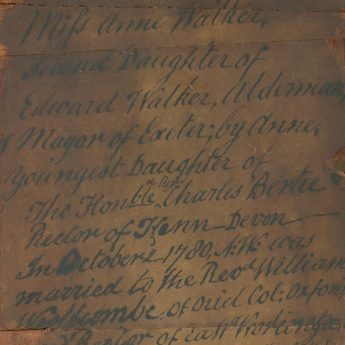 Miſs Anne Walker,
Second Daughter of
Edward Walker, Alderman,
& Mayor of Exeter; by Anne,
Youngest Daughter of
The Honble & Revd Charles Bertie
Rector of Kenn Devon
In October 1780, A.W. was
married to the Revd William
Woollcombe, of Oriel Col: Oxford,
Rector of East Worlington